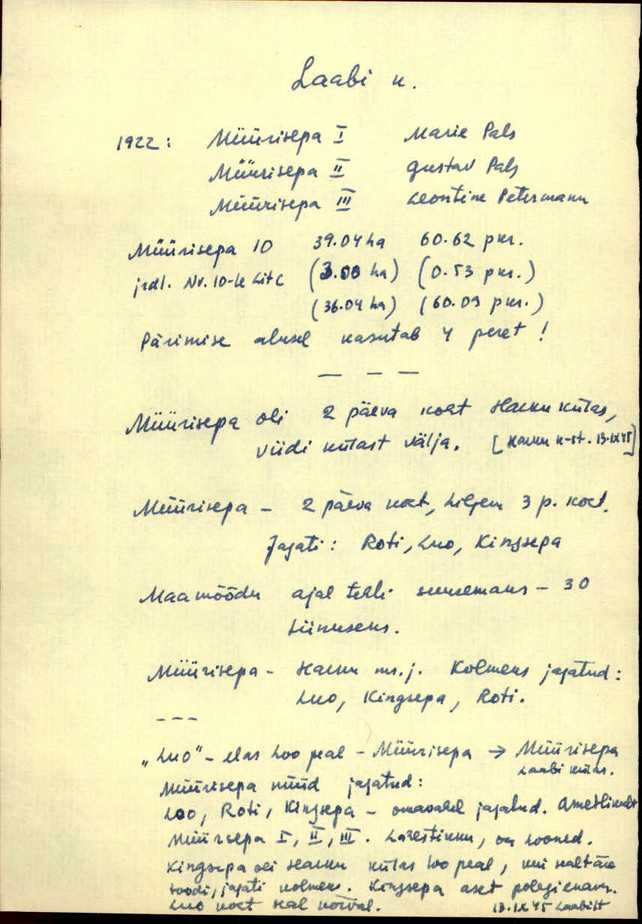 Laabi k.
1922: Müürisepa I Marie Pals
Müürisepa II Gustav Pals
Müürisepa III Leontine Petermann
Müürisepa 10 39.04 ha 60.62 pkr.
jrdl. Nr. 10-le Lit C (3.00 ha) (0.53 pkr.)
(36.04 ha) (60.09 pkr.)
Pärimise alusel kasutab 4 peret!
— — —
Müürisepa oli 2 päeva koht Harku külas,
viidi külast välja. [Harku k-st. 13.IX 45]
Müürisepa – 2 päeva koht, hiljem 3 p. koht.
Jagati: Roti, Luo, Kingsepa
Maamõõdu ajal tehti suuremaks – 30
tiinuseks.
Müürisepa – Harku ms. j. Kolmeks jagatud:
Luo, Kingsepa, Roti.
– – –
„Luo" – elas Loo peal – Müürisepa → Müürisepa
Laabi külas.
Müürisepa nüüd jagatud:
Loo, Roti, Kingsepa – omavahel jagatud. Ametlikult
Müürsepa I, II, III. on looned.
Kingsepa oli Harku külas Loo peal, kui
toodi, jagati kolmeks. Kingsepa aset
Luo koht seal kõrval. 13.IX 45 Laabist